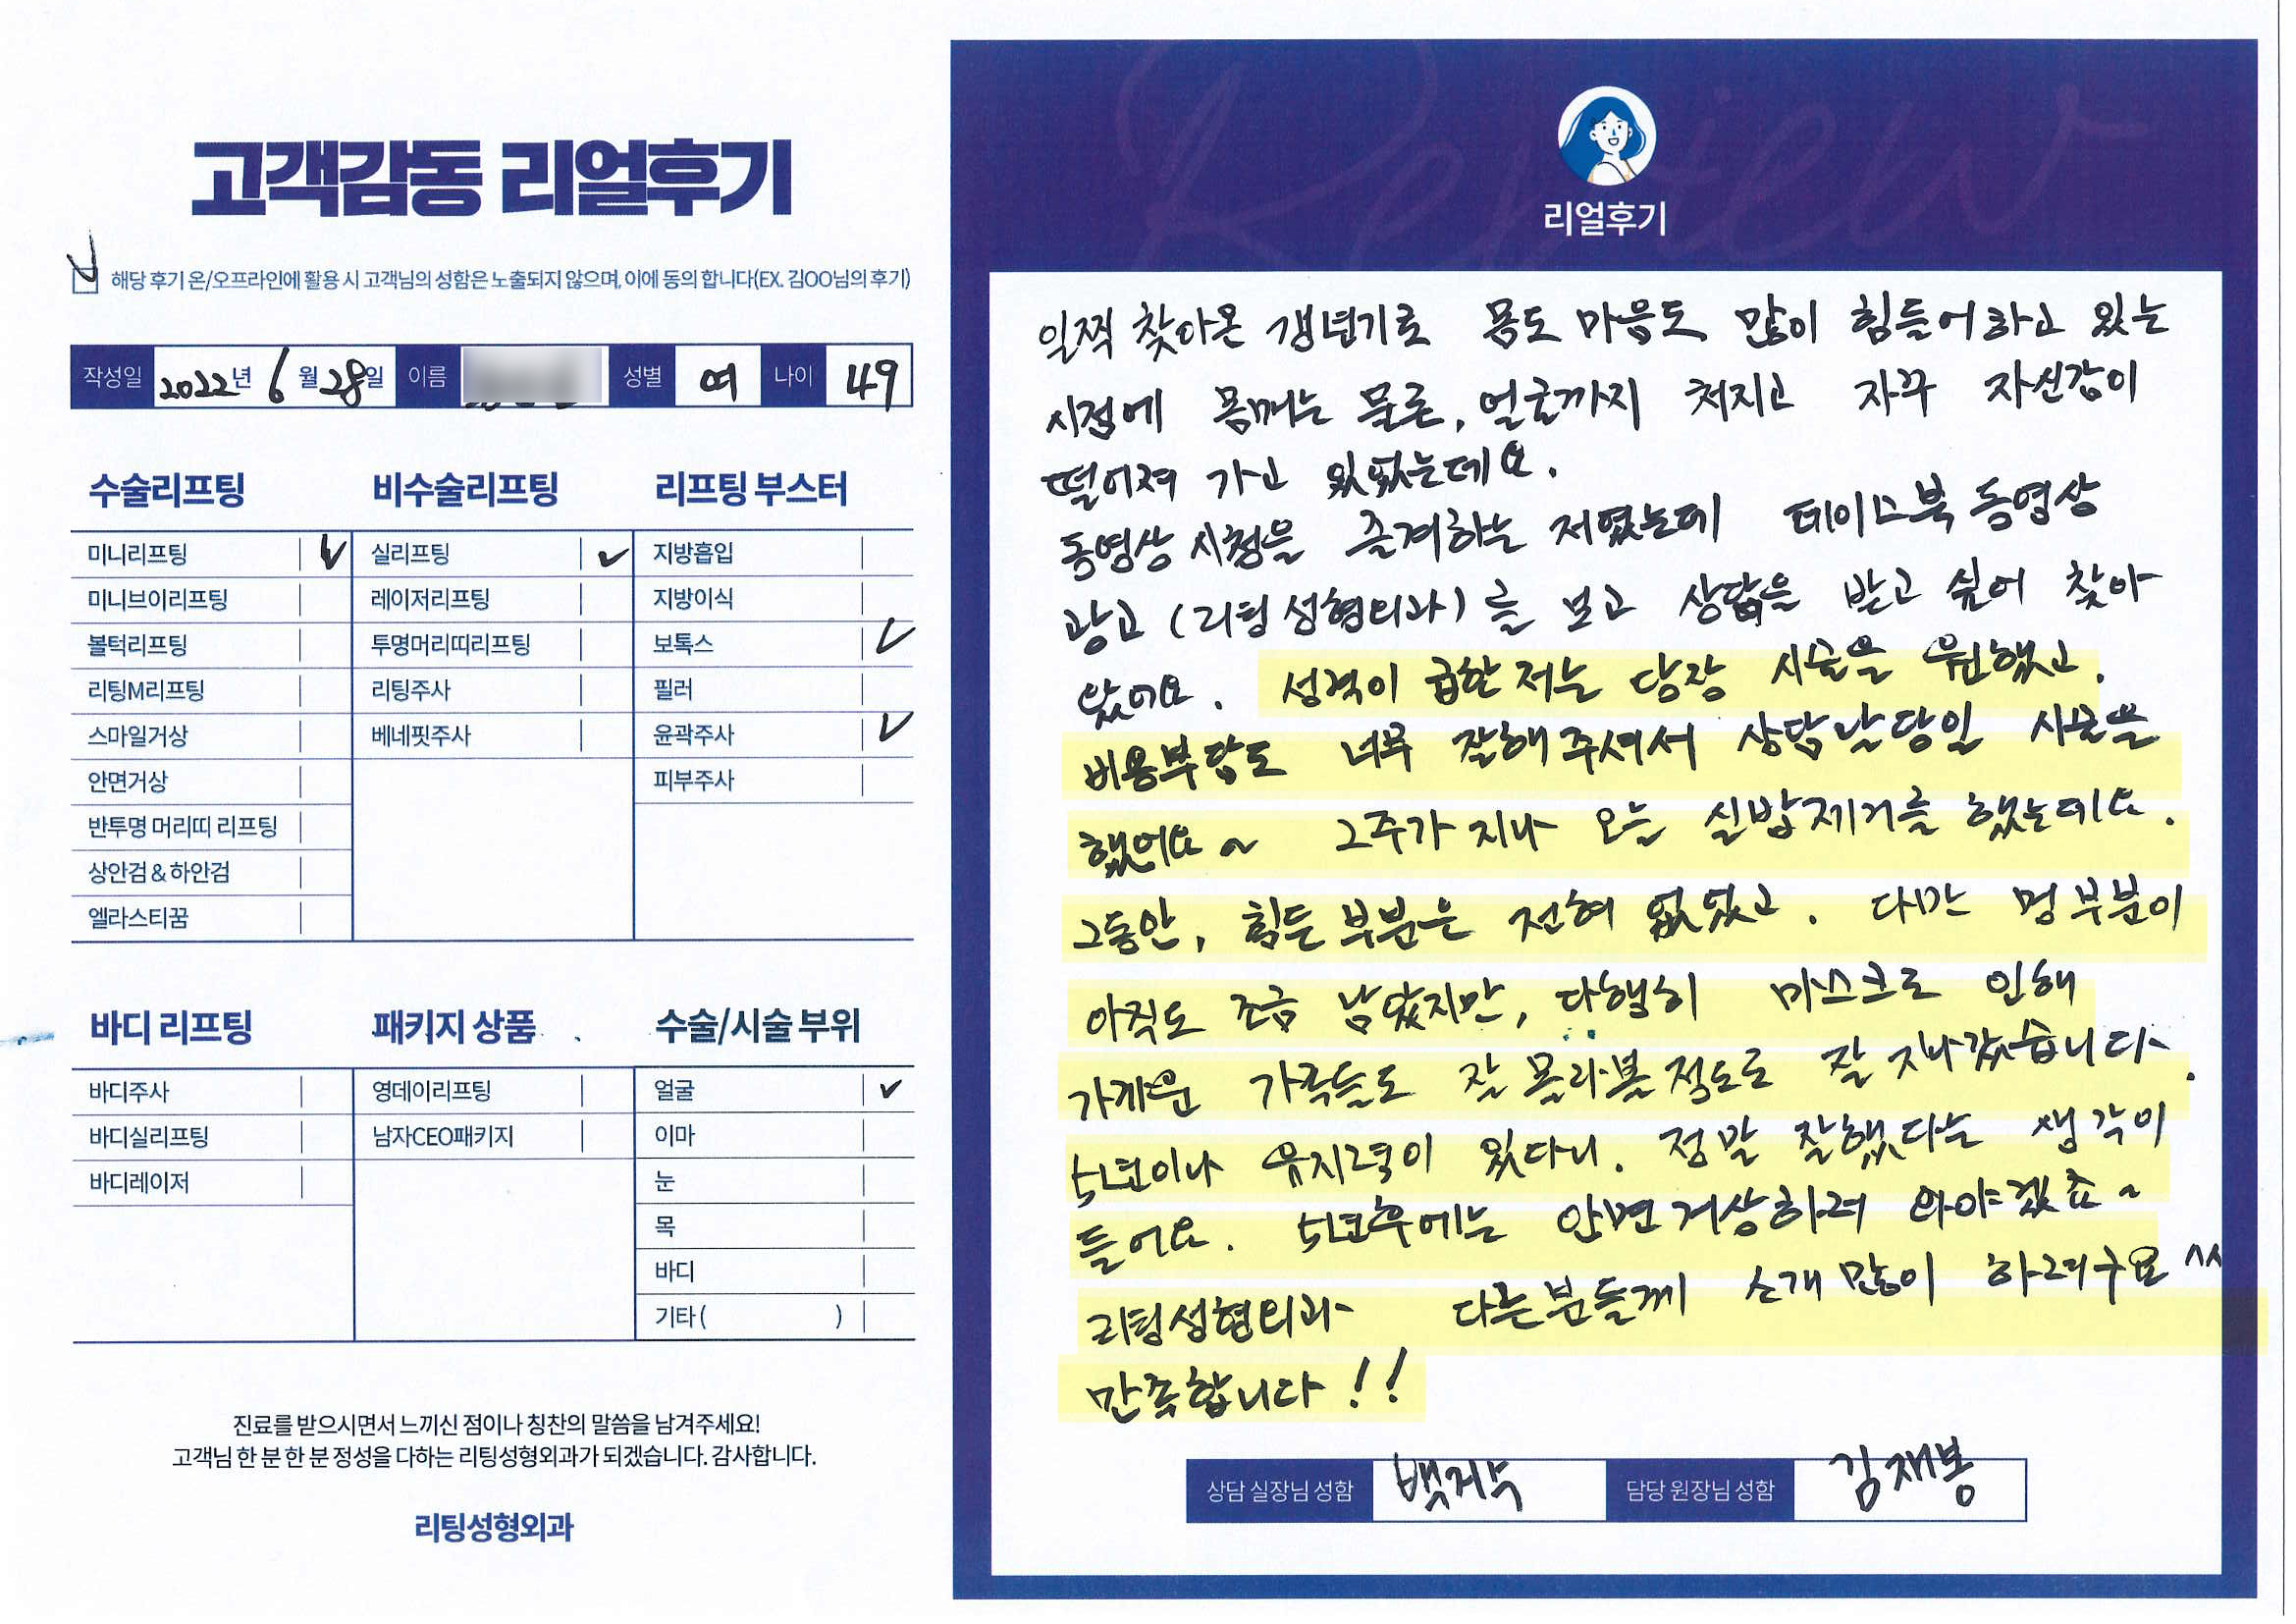 고객감동 리얼후기
해당 후기 온/오프라인에 활용 시 고객님의 성함은 노출되지 않으며, 이에 동의 합니다(EX. 김OO님의 후기)
작성일 2022년 6월 28일 이름 성별 여 나이 49
수술리프팅 비수술리프팅 리프팅 부스터
미니리프팅 실리프팅 지방흡입
미니브이리프팅 레이저리프팅 지방이식
볼턱리프팅 투명머리띠리프팅 보톡스
리팅M리프팅 리팅주사 필러
스마일거상 베네핏주사 윤곽주사
안면거상 피부주사
반투명 머리띠 리프팅
상안검 & 하안검
엘라스티꿈
바디 리프팅 패키지 상품 수술/시술 부위
바디주사 영데이리프팅 얼굴
바디실리프팅 남자CEO패키지 이마
바디레이저 눈
목
바디
기타( )
진료를 받으시면서 느끼신 점이나 칭찬의 말씀을 남겨주세요!
고객님 한 분 한 분 정성을 다하는 리팅성형외과가 되겠습니다. 감사합니다.
리팅성형외과
Review
리얼후기
일찍 찾아온 갱년기로 몸도 마음도 많이 힘들어하고 있는
시점에 몸매는 물론, 얼굴까지 처지고 자꾸 자신감이
떨어져 가고 있었는데요.
동영상 시청을 즐겨하는 저였는데 페이스북 동영상
광고 (리팅성형외과)를 보고 상담을 받고 싶어 찾아
왔어요. 성격이 급한 저는 당장 시술을 원했고.
비용부담도 너무 잘해주셔서 상담날 당일 시술을
했어요~ 2주가 지나 오늘 실밥제거를 했는데요.
그동안, 힘든 부분은 전혀 없었고. 다만 멍 부분이
아직도 조금 남았지만, 다행히 마스크로 인해
가까운 가족들도 잘 몰라볼 정도로 잘 지나갔습니다.
5년이나 유지력이 있다니. 정말 잘했다는 생각이
들어요. 5년후에는 안면거상하러 와야겠죠~
리팅성형외과 다른분들께 소개 많이 하려구요 ^^
만족합니다!!
상담 실장님 성함 담당 원장님 성함 김재봉